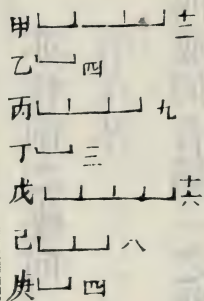 甲 十二
乙 四
丙 九
丁 三
戊 十六
己 八
庚 四